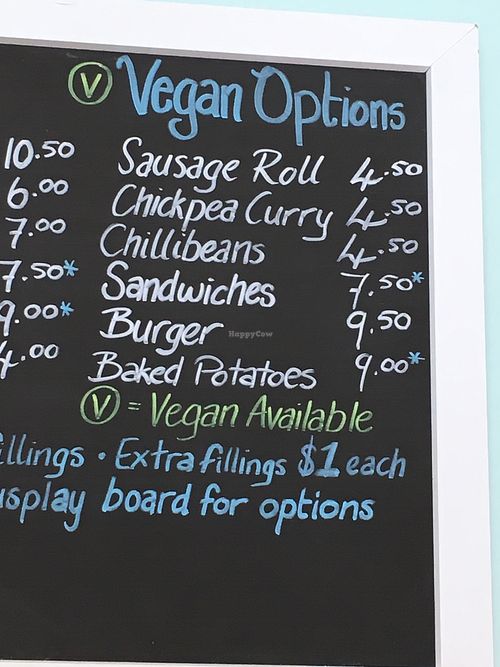 V Vegan Options
10.50 Sausage Roll 4.50
6.00 Chickpea Curry 4.50
7.00 Chillibeans 4.50
7.50* Sandwiches 7.50*
9.00* Burger 9.50
4.00 Baked Potatoes 9.00*
V = Vegan Available
illings • Extra fillings $1 each
isplay board for options
HappyCow